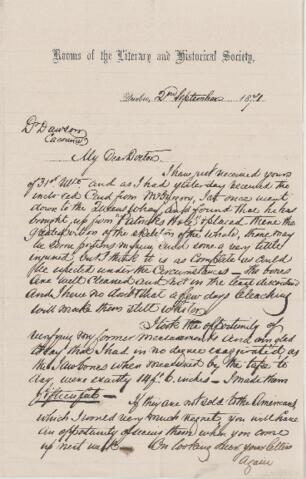 Rooms of the Literary and Historical Society,
Quebec, 2nd September 1871.
Dr Dawson
My Dear Doctor
I have just received yours
of 31st Ulto and as I had yesterday received the
Card from Mr I at once went
down to the and found that he has
brought up from the
greatest portion of the skeleton of the Whale, there may
be some portions missing and some a very little
injured, but I think it is as complete as could
be expected under the Circumstances — the bones
are well cleaned and not in the least
and I have no doubt that a few days bleaching
will make them still whiter.
I took the opportunity of
my former measurements and am glad
to say that I had in no degree exaggerated as
the Jaw bones when measured by the tape to
day were exactly 14 ft 6 inches — I made them
If they are not sold to the Americans
which I would very much regret, you will have
an opportunity of seeing them when you come
up next week — On looking over your letter
again